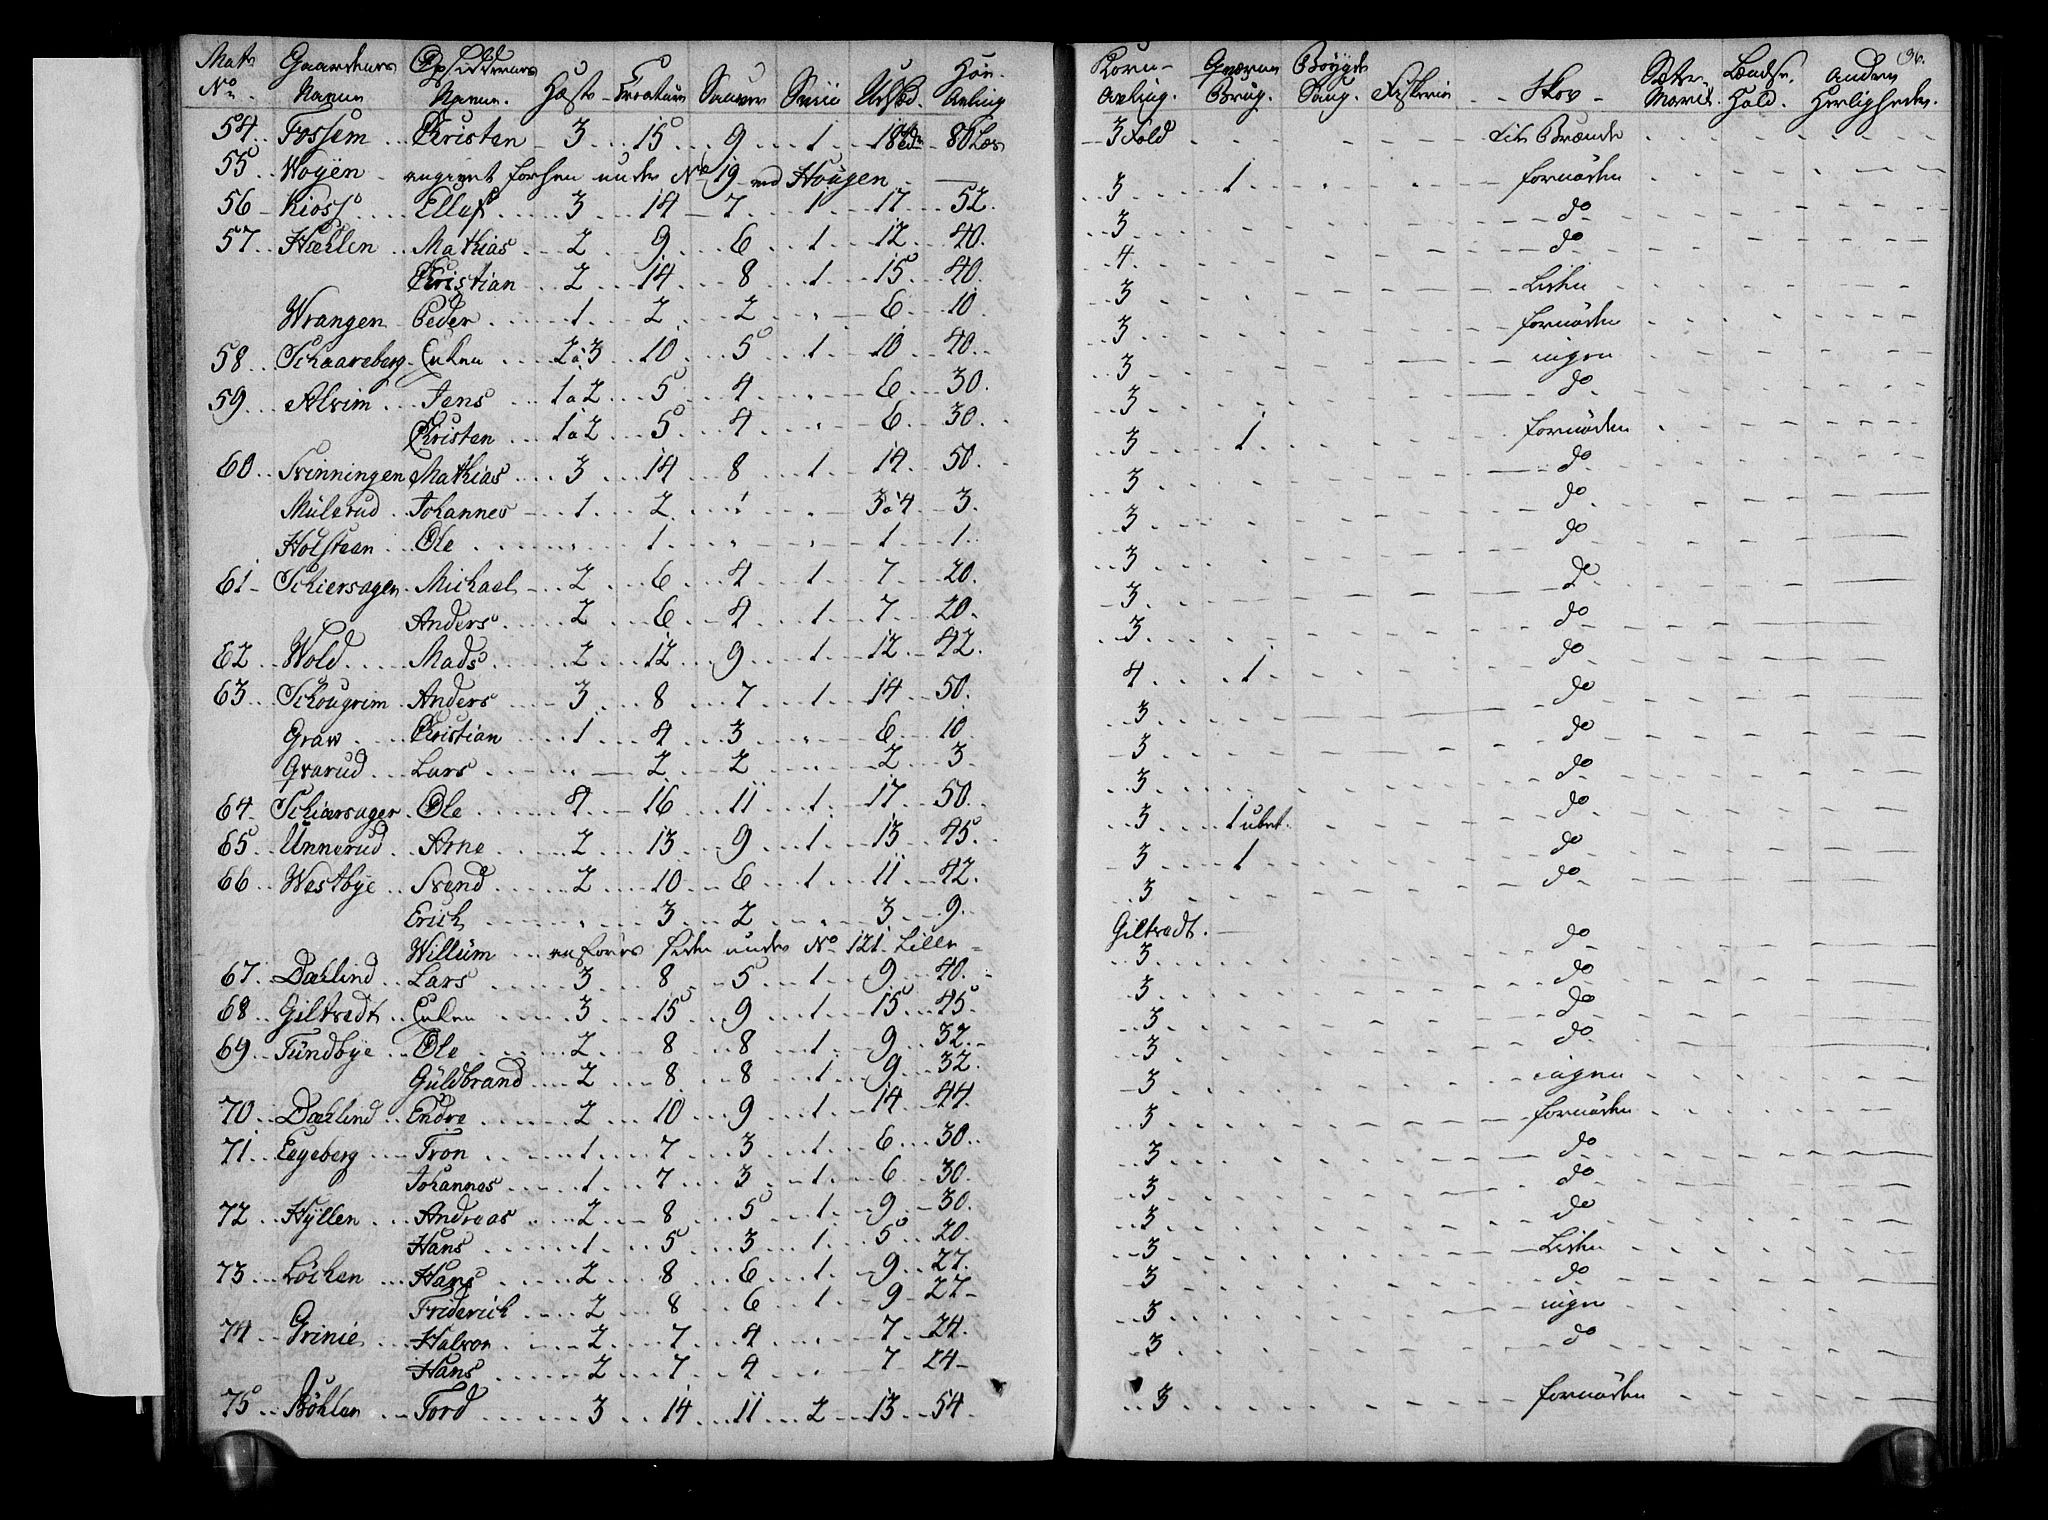 Mat: Gaardenes Opsiddernes Høe-
No Navne Navne. Hæste Creature Sauer Sviin Udsæd. Avling
54.. Fossem .. Christen - 3 ... 15 .. 9 ... 1 .. 18 - 80 Læs
55.. Woyen - angivet forhen under No 19 ved Hougen -
56 - Kioss .... Elluf .... 3 ... 14 - 7 ... 1 ... 17 ... 52.
57.. Hæhlen .. Mathias .. 2 ... 9 .. 6 ... 1 ... 12 .. 40.
Christian .. 2 ... 14 .. 8 ... 1 ... 15 .. 40.
Wrangen - Peder ..... 1 ... 2 .. 2 ... - 6 ... 10.
58.. Schaareberg Enken ... 2 à 3 .. 10 .. 5 ... 1 .. 10 .. 40.
59... Alvim ... Jens .. 1 a 2 ... 5 ... 4 .... 6 ... 30.
Christen .. 1 a 2 ... 5 .. 4 .... 6 ... 30.
60.. Svinningen Mathias ... 3 ... 14 .. 8 ... 1 ... 14 .. 50.
Mülerud .. Johannes - 1 ... 2 ... 3 a 4 .. 3.
Holstean .. Ole ...... 1 .... 1 ... 1.
61 - Schiersagen. Michael - 2 ... 6 .. 4 .. 1 ... 7 ... 20.
Anders .... 2 ... 6 .. 4 .. 1 ... 7 ... 20.
62.. Wold .... Mads .... 2 ... 12 .. 9 ... 1 ... 12 .. 42.
63.. Schougrim . Anders ... 3 ... 8 .. 7 ... 1 ... 14 .. 50.
Graw .... Christian ... 1 ... 4 .. 3 .... 6 ... 10.
Qvarud ... Lars ..... 2 .. 2 .... 2 ... 3.
64.. Schiersager . Ole .... 4 ... 16 .. 11 .. 1 .. 17 .. 50.
65.. Unnerud .. Arne .... 2 ... 13 .. 9 ... 1 ... 13 .. 45.
66.. Westbye .. Svend .... 2 ... 10 .. 6 ... 1 ... 11 .. 42.
Erich ..... 3 .. 2 .... 3 ... 9.
Willum ... under No 121. Lille -
67.. Dæhlind .. Lars ..... 3 ... 8 .. 5 ... 1 ... 9 ... 40.
68.. Giltvedt .. Enken .... 3 ... 15 .. 9 ... 1 ... 15 .. 45.
69.. Tundbye .. Ole ..... 2 ... 8 .. 8 ... 1 ... 9 .. 32.
Güldbrand ... 2 ... 8 .. 8 ... 1 ... 9 .. 32.
70.. Dæhlind .. Endre .... 2 ... 10 .. 9 ... 1 ... 14 .. 44.
71.. Eegeberg .. Tron .... 1 ... 7 .. 3 ... 1 ... 6 ... 30.
Johannes .... 1 ... 7 .. 3 ... 1 ... 6 ... 30.
72.. Hyllen .. Andreas ... 2 ... 8 .. 5 ... 1 ... 9 ... 30.
Hans ..... 1 ... 5 .. 3 ... 1 ... 5 ... 20.
73.. Löchen .. Hans .... 2 ... 8 .. 6 ... 1 ... 9 .. 27.
Friderich ... 2 ... 8 .. 6 ... 1 ... 9 .. 27.
74.. Grinie .. Halvor ... 2 ... 7 .. 4 .... 7 .. 24.
Hans ..... 2 ... 7 .. 4 .... 7 .. 24.
75.. Böhlen .. Tord ..... 3 ... 14 .. 11 .. 2 .. 13 .. 54.
36.
Korn- Qværne Bøygde Sæter- Lændse. Andre
Avling. Brug. Saug. Fiskerie Skov Havn. Hald. Herligheder.
3 Fold Brænde
3 1 fornöden
3 do
4 do
3 Liden
3 fornöden
3 ingen
3 do
3 1 fornöden
3 do
3 do
3 do
3 do
3 do
4 1 do
3 do
3 do
3 do
3 1 ubet. do
3 1 do
3 do
Giltvedt.
3 do
3 do
3 do
3 do
3 ingen
3 fornöden
3 do
3 do
3 do
3 Liden
3 do
3 ingen
3 do
3 fornöden